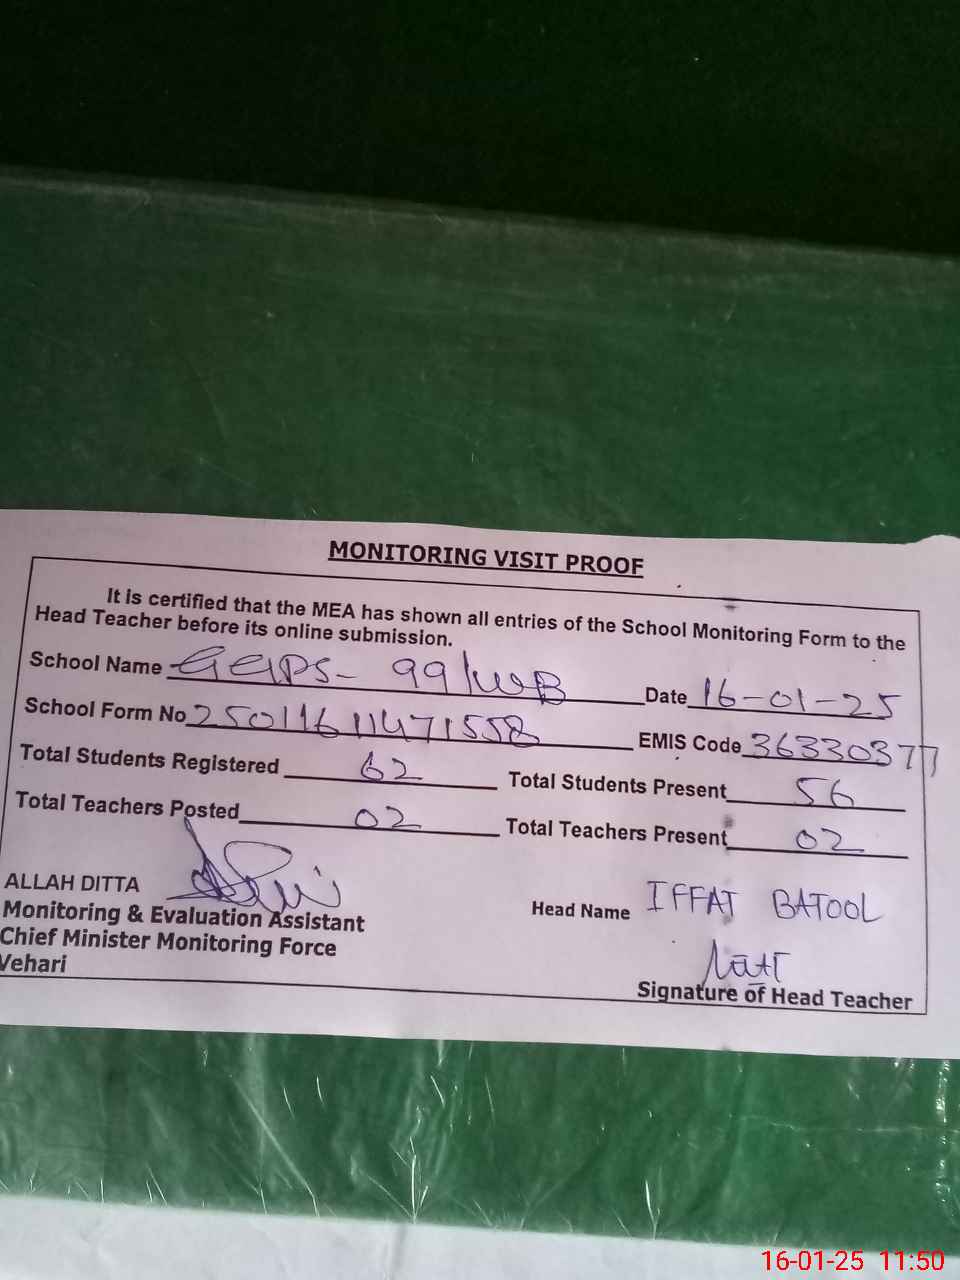 MONITORING VISIT PROOF
It is certified that the MEA has shown all entries of the School Monitoring Form to the
Head Teacher before its online submission.
School Name GGPS- 99/WB Date 16-01-25
School Form No 25011611471558 EMIS Code 36330377
Total Students Registered 62 Total Students Present 56
Total Teachers Posted 02 Total Teachers Present 02
ALLAH DITTA
Monitoring & Evaluation Assistant Head Name IFFAT BATOOL
Chief Minister Monitoring Force
Vehari
Signature of Head Teacher
16-01-25 11:50